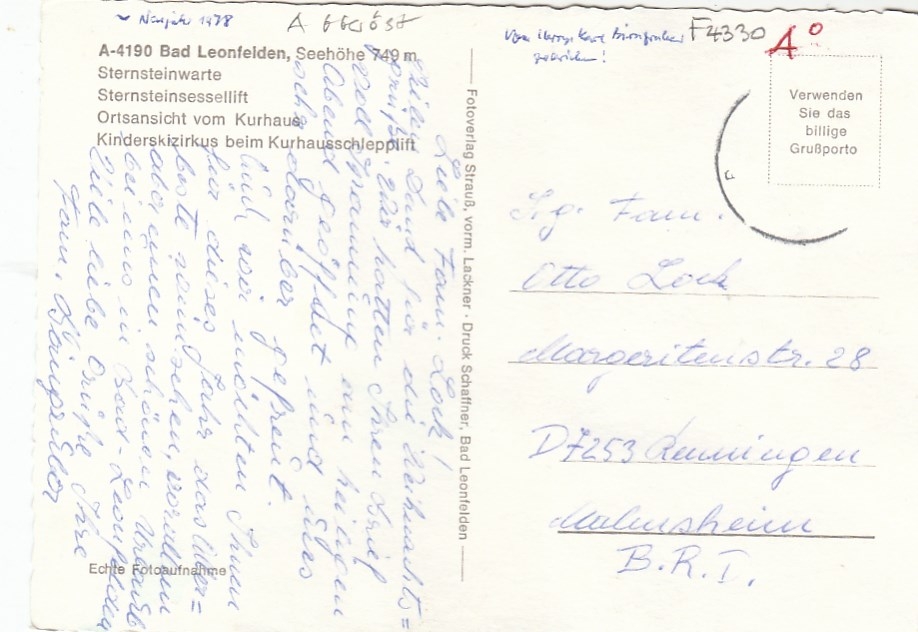 ~ Neujahr 1978
A
A-4190 Bad Leonfelden, Seehöhe 749 m
Sternsteinwarte
Sternsteinsessellift
Ortsansicht vom Kurhaus
Kinderskizirkus beim Kurhausschlepplift
Liebe Fam. Lock!
Vielen Dank für die Weihnachts=
grüße. Wir hatten Ihren Brief
voll Spannung am heiligen
Abend geöffnet und uns
sehr darüber gefreut.
Und wir möchten Ihnen
für dieses Jahr das Aller=
beste wünschen, vor allem
aber einen schönen Urlaub
bei uns in Bad-Leonfelden
Viele liebe Grüße Ihre
Fam.
Echte Fotoaufnahme
Fotoverlag Strauß, vorm. Lackner · Druck Schaffner, Bad Leonfelden
von
F4330
A°
Verwenden
Sie das
billige
Grußporto
Sg. Fam.
Otto Lock
Margeritenstr. 28
D7253 Renningen
Malmsheim
B.R.D.